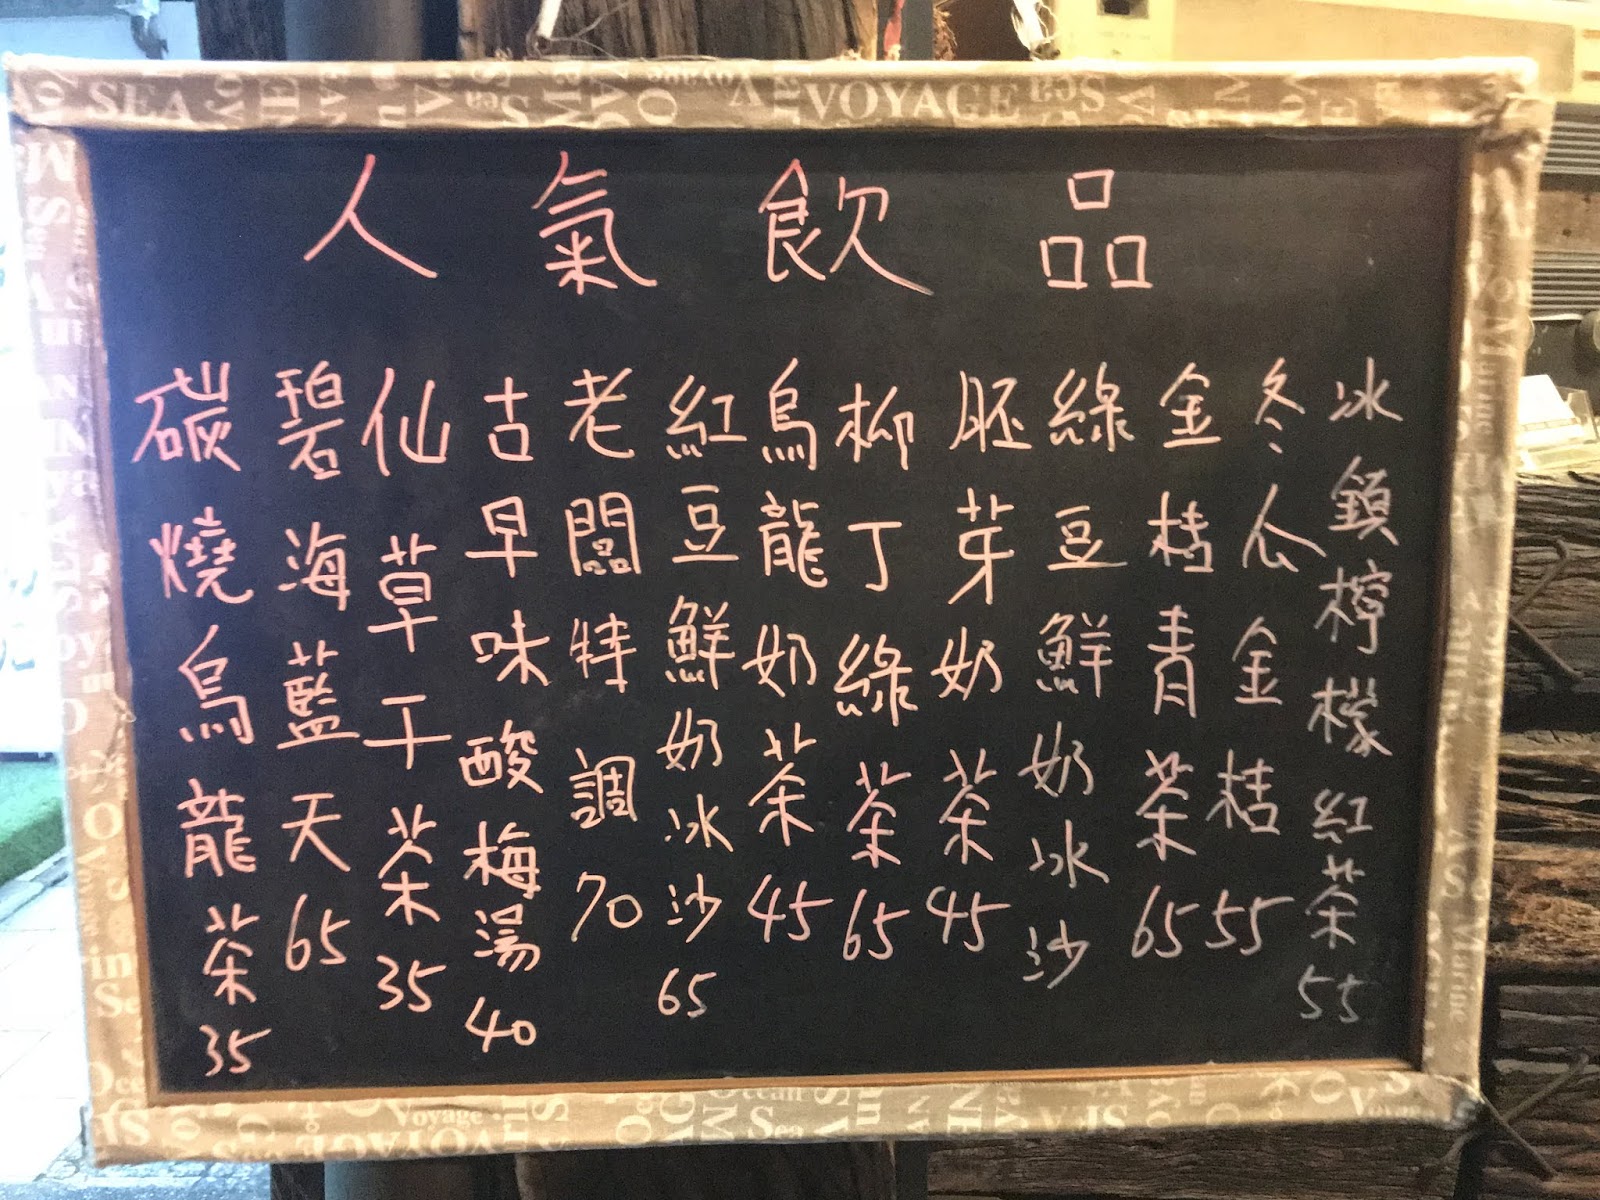 SEA
VOYAGE
Sea
人氣飲品
冰鎮檸檬紅茶55
冬瓜金桔55
金桔青茶65
綠豆鮮奶冰沙
胚芽奶茶45
柳丁綠茶65
烏龍奶茶45
紅豆鮮奶冰沙65
老闆特調70
古早味酸梅湯40
仙草干茶35
碧海藍天65
碳燒烏龍茶35
Voyage
Ocean
Sea
Voyage